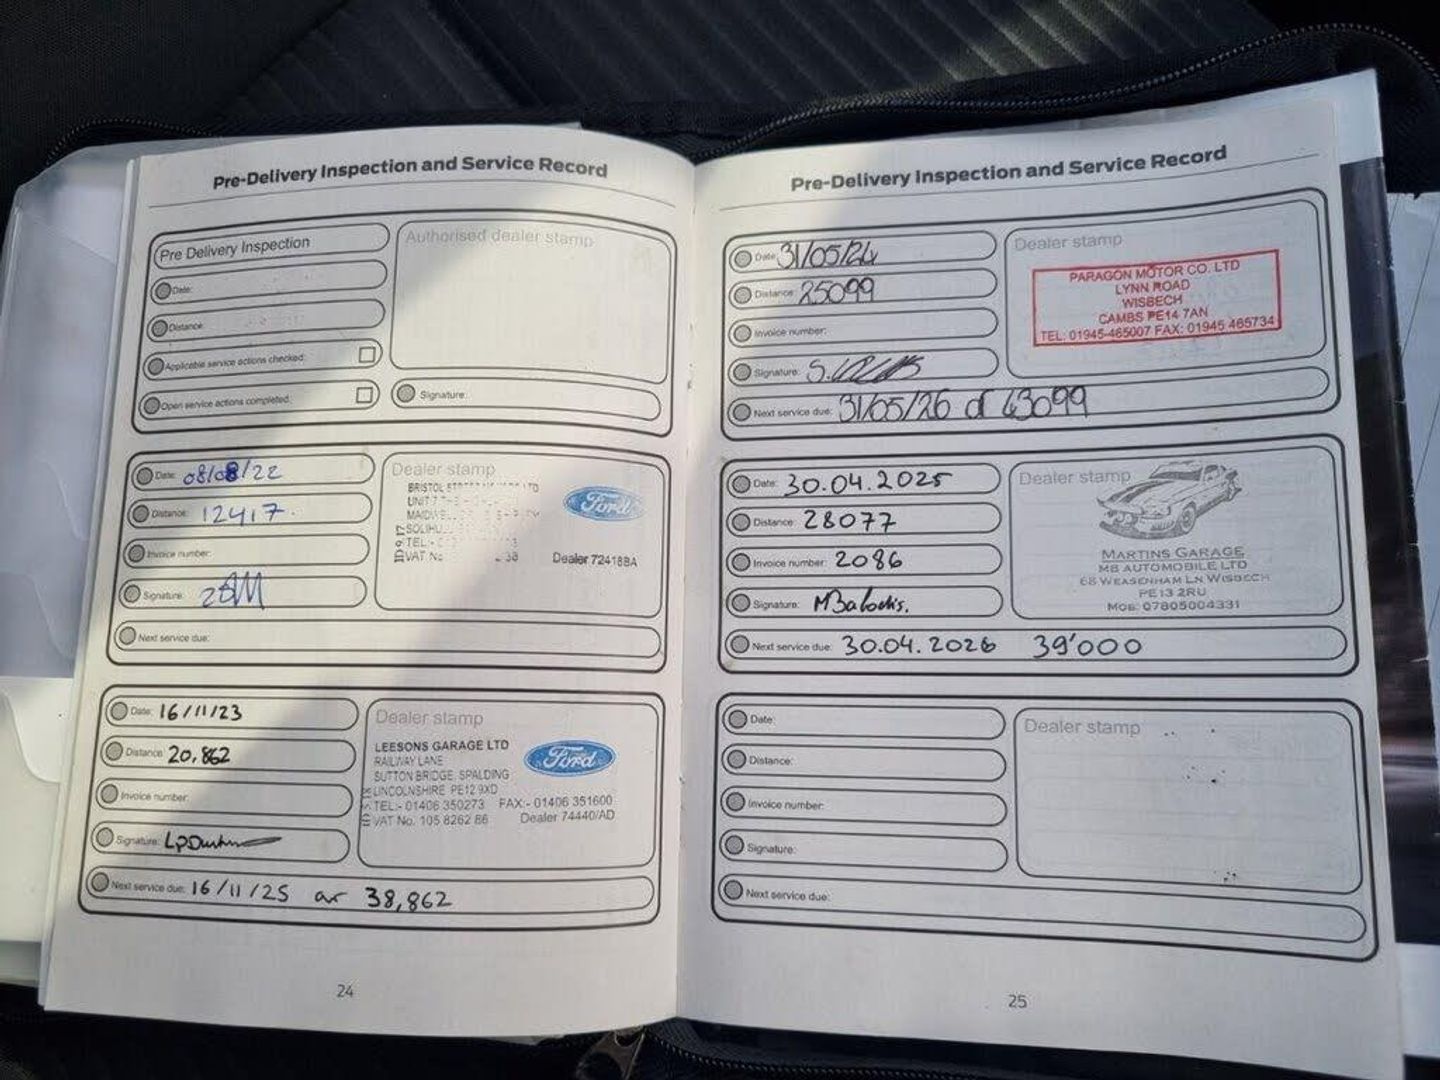 Pre-Delivery Inspection and Service Record
Pre Delivery Inspection
Date:
Distance:
Applicable service actions checked:
Open service actions completed:
Authorised dealer stamp
Signature:
Date: 08/08/22
Distance: 12417.
Invoice number:
Signature:
Next service due:
Dealer stamp
BRISTOL LTD
UNIT
SOLIHU
TEL:-
VAT No
Ford
Dealer 72418BA
Date: 16/11/23
Distance: 20,862
Invoice number:
Signature:
Next service due: 16/11/25 or 38,862
Dealer stamp
LEESONS GARAGE LTD
RAILWAY LANE
SUTTON BRIDGE, SPALDING
LINCOLNSHIRE PE12 9XD
TEL:- 01406 350273 FAX:- 01406 351600
VAT No. 105 8262 86 Dealer 74440/AD
Ford
24
Pre-Delivery Inspection and Service Record
Date: 31/05/24
Distance: 25099
Invoice number:
Signature:
Next service due: 31/05/26 or 43099
Dealer stamp
PARAGON MOTOR CO. LTD
LYNN ROAD
WISBECH
CAMBS PE14 7AN
TEL: 01945-465007 FAX: 01945 465734
Date: 30.04.2025
Distance: 28077
Invoice number: 2086
Signature: MBalodis.
Next service due: 30.04.2026 39'000
Dealer stamp
MARTINS GARAGE
MB AUTOMOBILE LTD
68 WEASENHAM LN WISBECH
PE13 2RU
MOB: 07805004331
Date:
Distance:
Invoice number:
Signature:
Next service due:
Dealer stamp
25